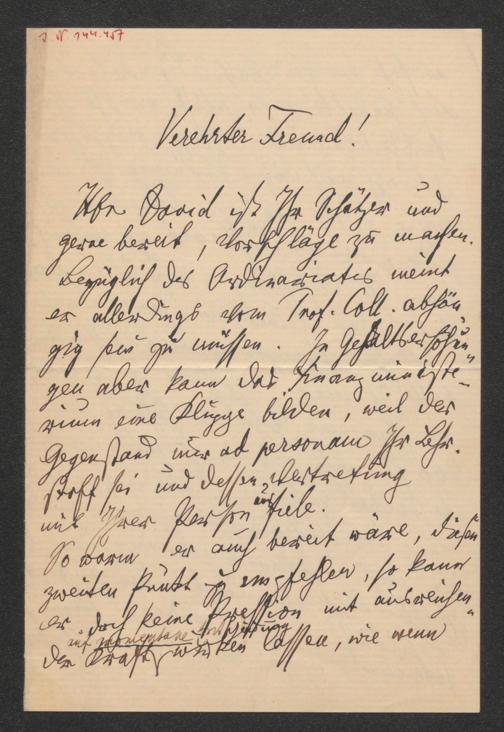 J. N 144.457
Verehrter Freund!
Hfr. David ist Ihr Schätzer und
gerne bereit, Vorschläge zu machen.
Bezüglich des Ordinariates meint
er allerdings vom Prof. Coll. abhän
gig sein zu müssen. In Gehaltserhöhun
gen aber kann das Finanzministe-
rium eine Klippe bilden, weil der
Gegenstand nur ad personam Ihr Lehr-
stoff sei und dessen Vertretung
mit Ihrer Person fiele.
So warm er auch bereit wäre, diesen
zweiten Punkt zu empfehlen, so kann
er doch keine Pression mit ausreichen
auf momentane
der Kraft wirken lassen, wie wenn